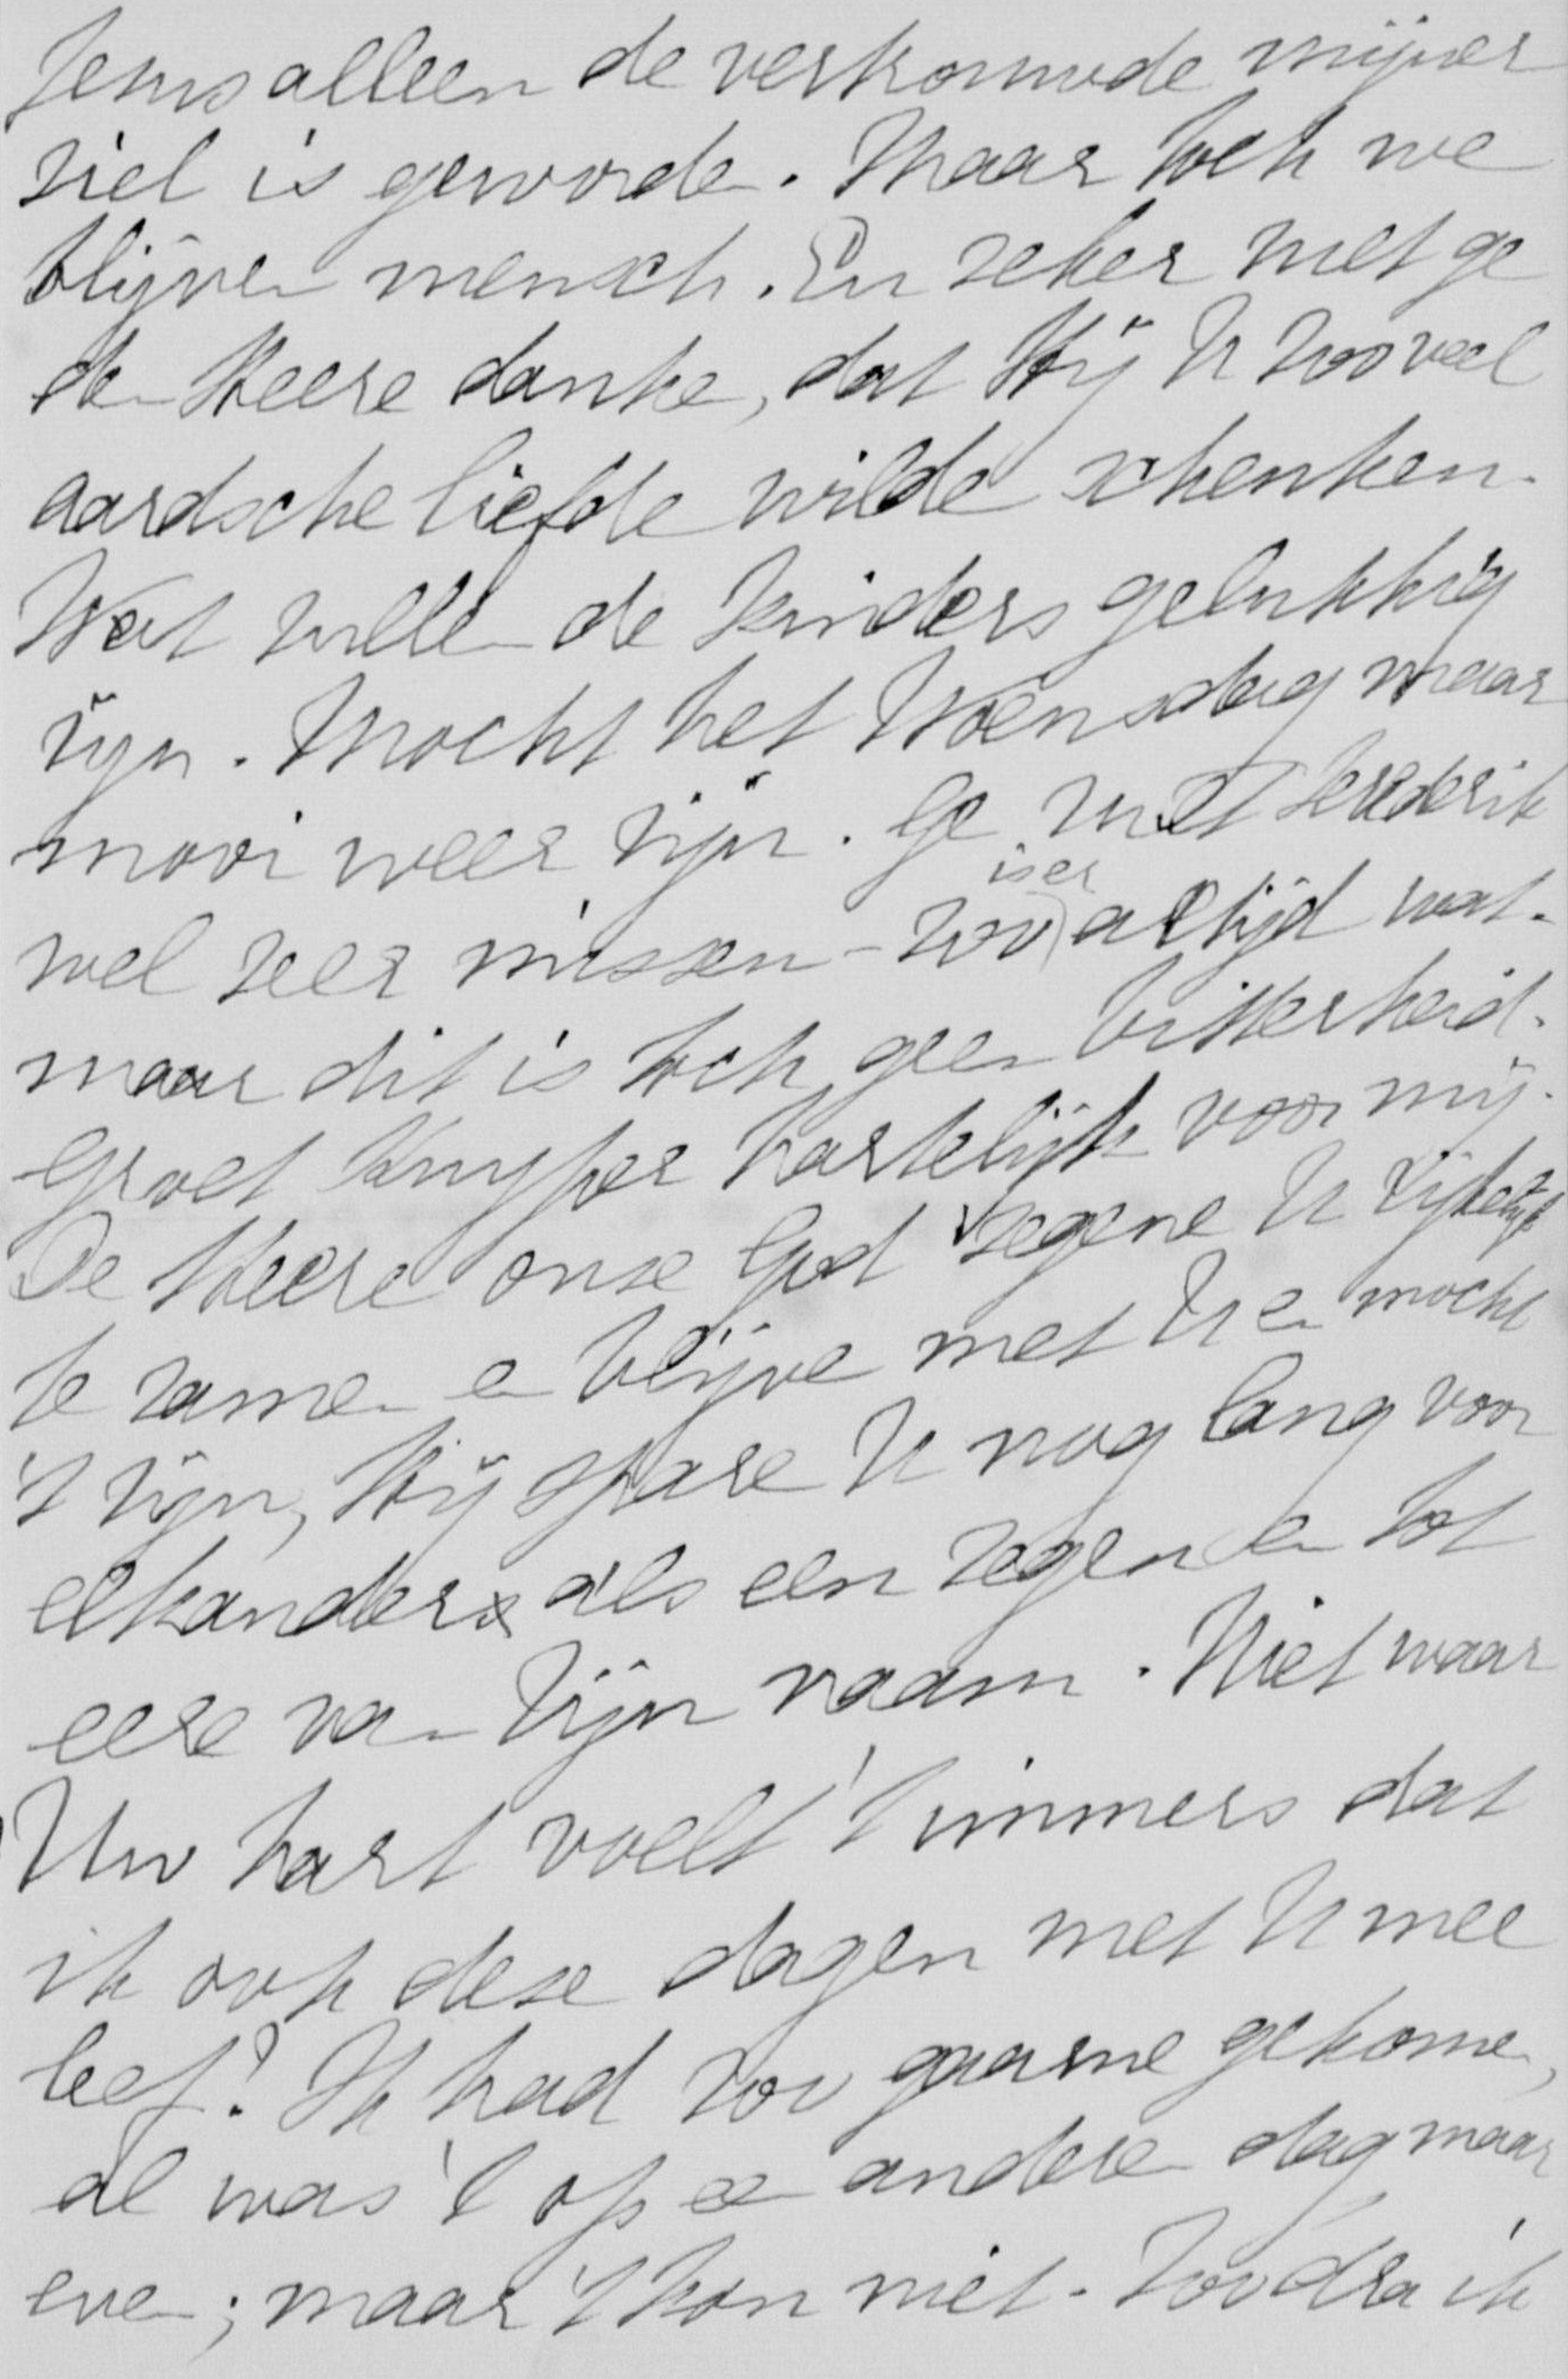 Jezus alleen de verkonmde mijner
ziel is geworde. Maar toch we
blijven mensch. En zeker zult ge
den Heere danke, dat Hij U zooveel
aardsche liefde wilde schenken.
Wat zulle de kinders gelukkig
zijn. Mocht het Woensdag maar
mooi weer zijn. Ge zult Frederik
wel zeer missen - zoo is er altijd wat.
maar dit is toch geen bitterheid.
Groet Kuyper hartelijk voor mij.
De Heere onze God zegene U rijkelijk
te zamen en blijve met U en mocht
't zijn, Hij spare U nog lang voor
elkander als een zegen en tot
eere van Zijn naam. Niet waar
Uw hart voelt 't immers dat
ik ook deze dagen met U mee
leef? Ik had zoo gaarne gekome,
al was 't op een andere dag maar
even; maar 't kon niet. Zoodra ik